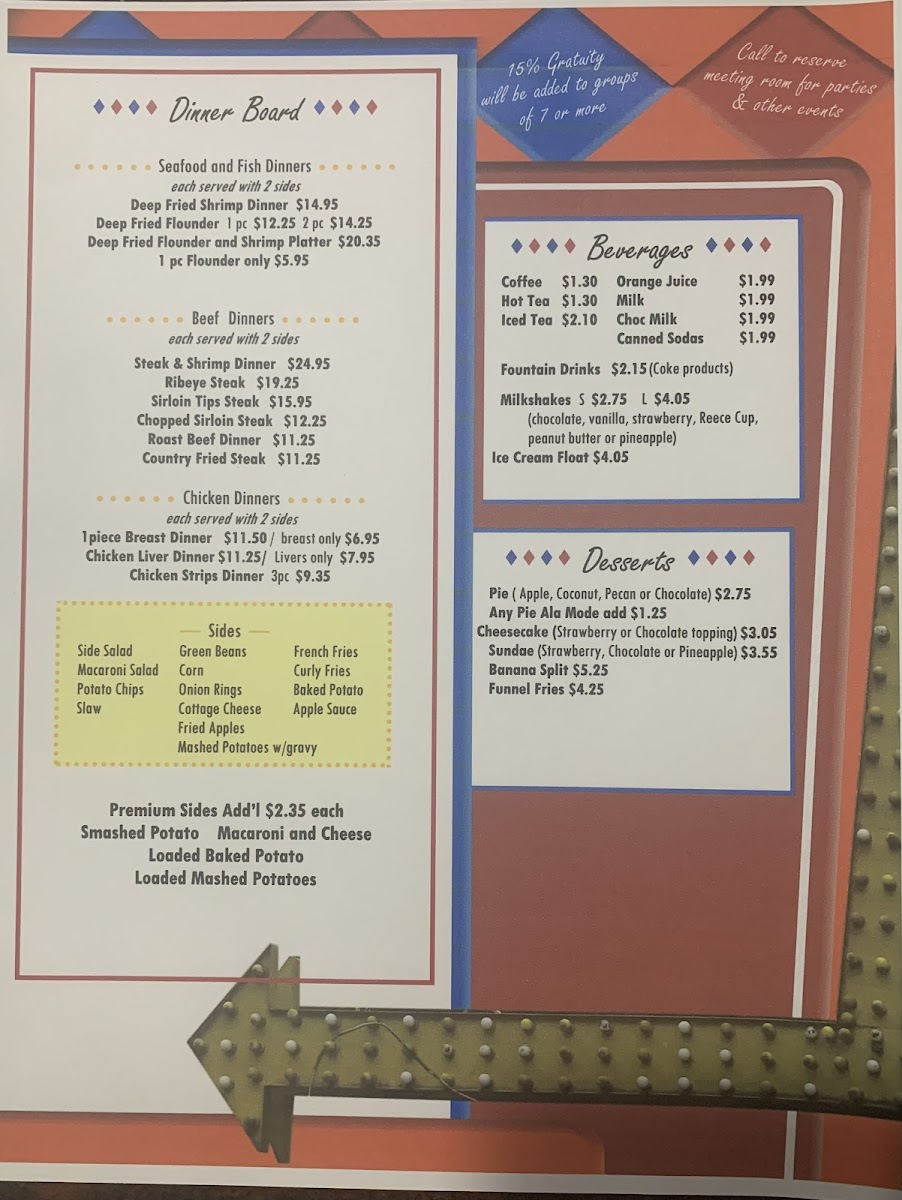 15% Gratuity
will be added to groups
of 7 or more
Call to reserve
meeting room for parties
& other events
Dinner Board
Seafood and Fish Dinners
each served with 2 sides
Deep Fried Shrimp Dinner $14.95
Deep Fried Flounder 1 pc $12.25 2 pc $14.25
Deep Fried Flounder and Shrimp Platter $20.35
1 pc Flounder only $5.95
Beef Dinners
each served with 2 sides
Steak & Shrimp Dinner $24.95
Ribeye Steak $19.25
Sirloin Tips Steak $15.95
Chopped Sirloin Steak $12.25
Roast Beef Dinner $11.25
Country Fried Steak $11.25
Chicken Dinners
each served with 2 sides
1piece Breast Dinner $11.50 / breast only $6.95
Chicken Liver Dinner $11.25/ Livers only $7.95
Chicken Strips Dinner 3pc $9.35
Sides
Side Salad Green Beans French Fries
Macaroni Salad Corn Curly Fries
Potato Chips Onion Rings Baked Potato
Slaw Cottage Cheese Apple Sauce
Fried Apples
Mashed Potatoes w/gravy
Premium Sides Add'l $2.35 each
Smashed Potato Macaroni and Cheese
Loaded Baked Potato
Loaded Mashed Potatoes
Beverages
Coffee $1.30 Orange Juice $1.99
Hot Tea $1.30 Milk $1.99
Iced Tea $2.10 Choc Milk $1.99
Canned Sodas $1.99
Fountain Drinks $2.15 (Coke products)
Milkshakes S $2.75 L $4.05
(chocolate, vanilla, strawberry, Reece Cup,
peanut butter or pineapple)
Ice Cream Float $4.05
Desserts
Pie ( Apple, Coconut, Pecan or Chocolate) $2.75
Any Pie Ala Mode add $1.25
Cheesecake (Strawberry or Chocolate topping) $3.05
Sundae (Strawberry, Chocolate or Pineapple) $3.55
Banana Split $5.25
Funnel Fries $4.25